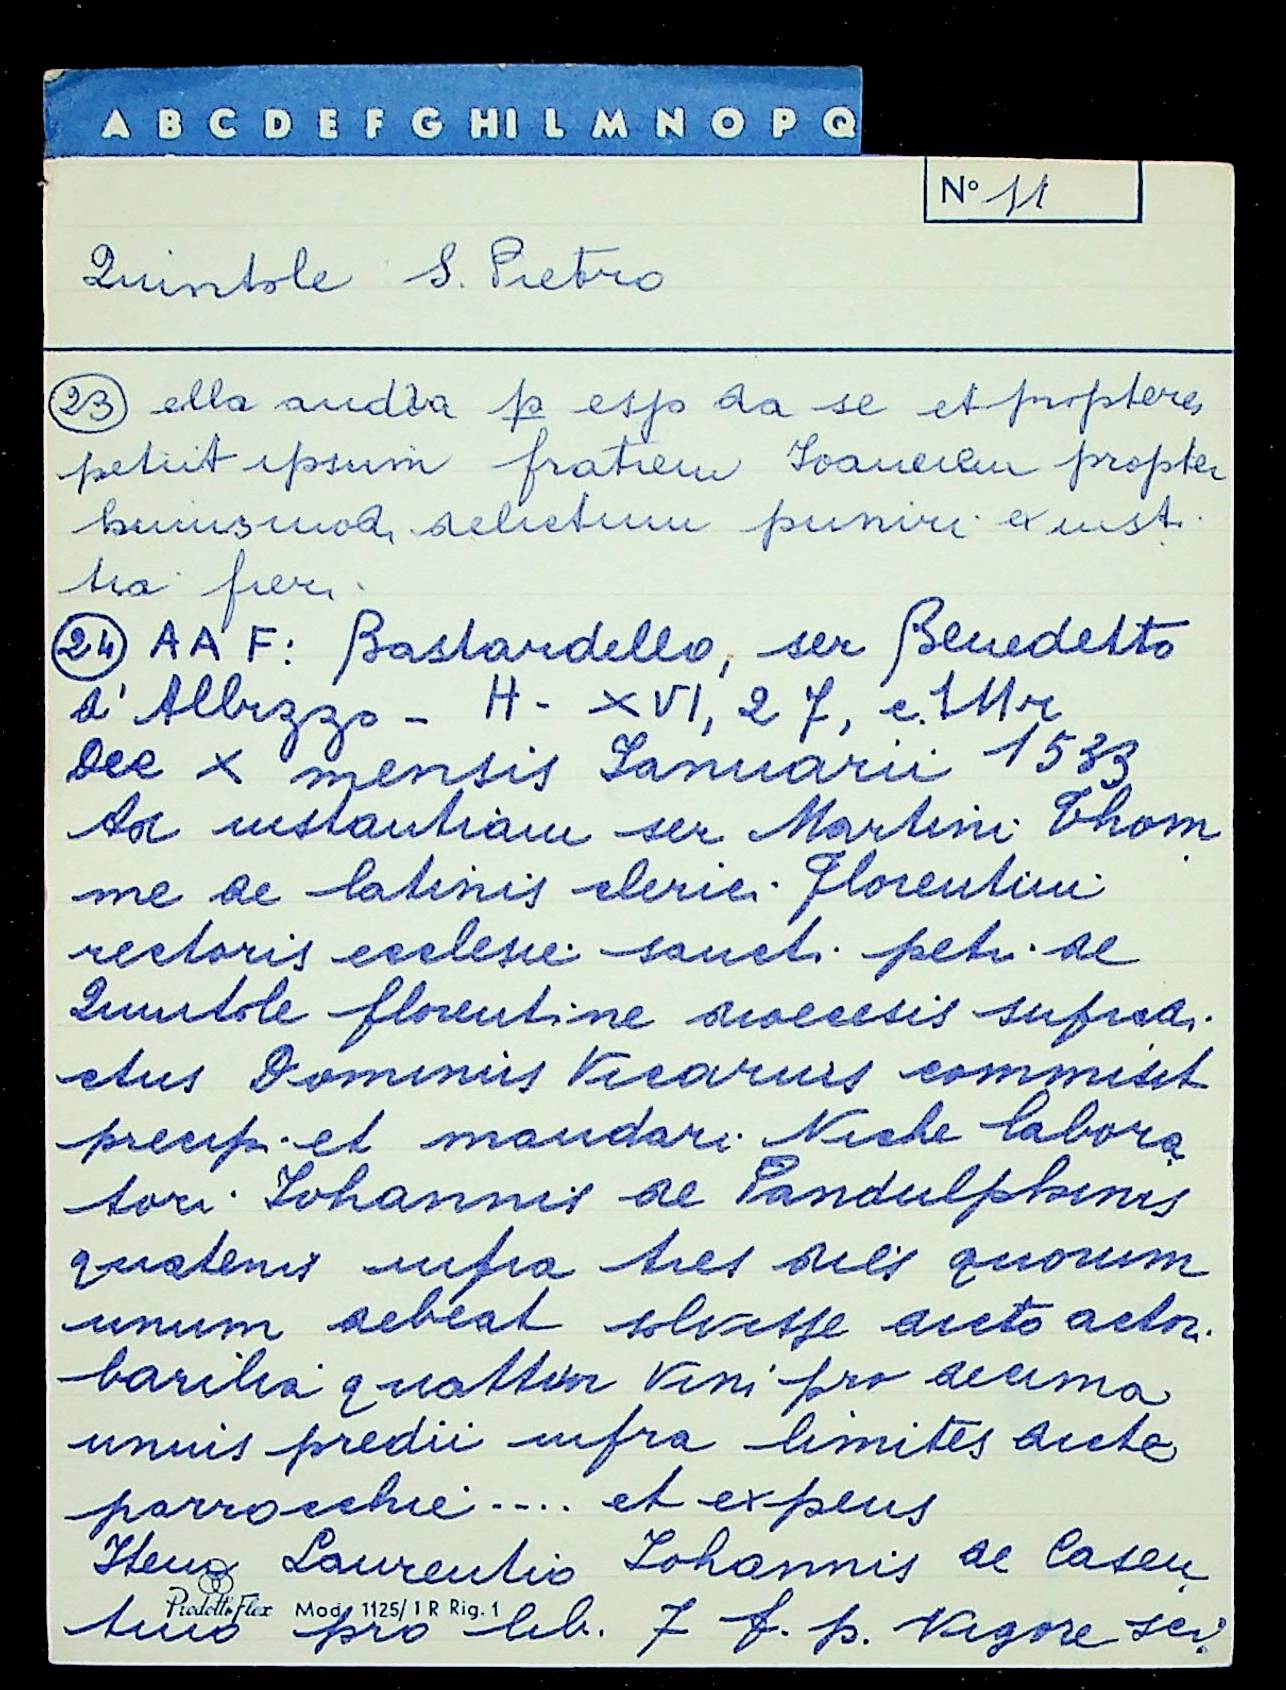 A B C D E F G HI L M N O P Q
Nº 11
Quintole S. Pietro
(23) ella andava p esso da se et propterea
petiit ipsum fratrem Joannem propter
huiusmodi delictum puniri et iusti
tia fieri.
(24) AAF: Bastardello, ser Benedetto
d'Albizzo - H - XVI, 27, c. 111r
Dee X mensis Januarii 1533
Ad instantiam ser Martini Thom
me de latinis clerici Florentini
rectoris ecclesie sancti petri de
Quintole florentine diocesis supradi
ctus Dominus Vicarius commisit
precip. et mandari Niche labora
tori Johannis de Pandulphinis
quatenis infra tres dies quorum
unum debeat solvisse dicto actori
barilia quattuor vini pro decima
unius predii infra limites dicte
parrocchie .... et expens
Item Laurentio Johannis de Casen
tino pro lib. 7 f. p. vigore
Prodotti Flex Mod. 1125/1R Rig. 1